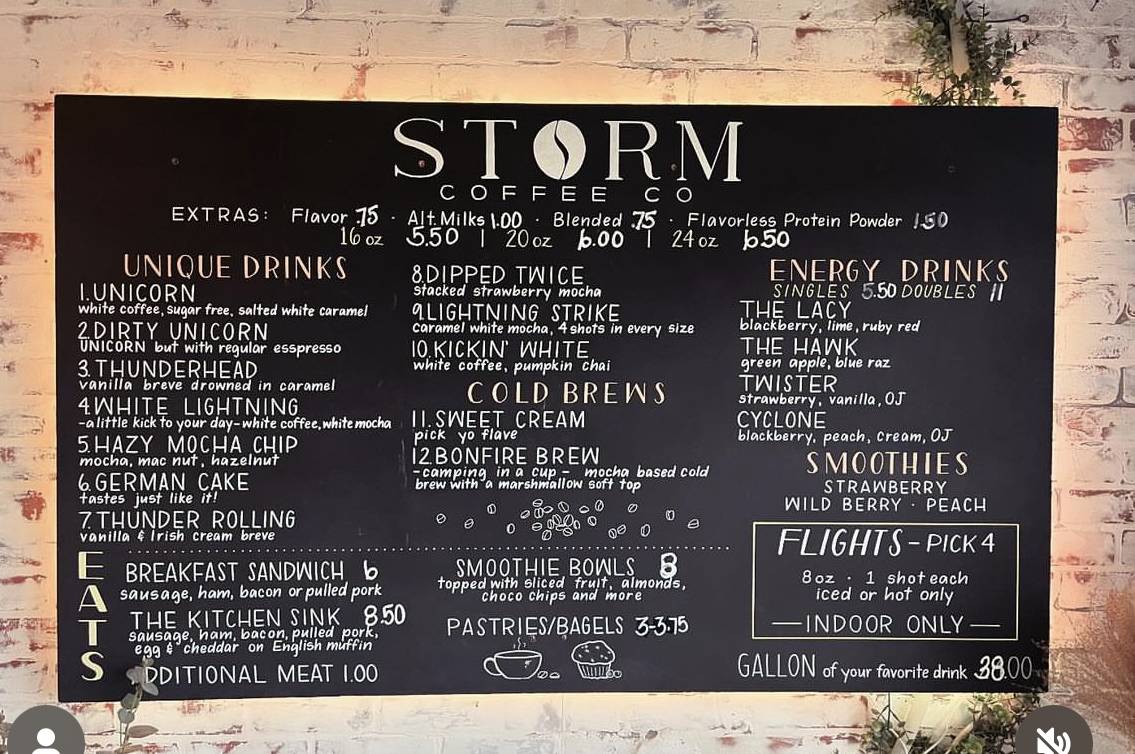 STORM
COFFEE CO
EXTRAS: Flavor .75 · Alt. Milks 1.00 · Blended .75 · Flavorless Protein Powder 1.50
16 oz 5.50 | 20 oz 6.00 | 24 oz 6.50
UNIQUE DRINKS
1. UNICORN
white coffee, sugar free, salted white caramel
2. DIRTY UNICORN
UNICORN but with regular esspresso
3. THUNDERHEAD
vanilla breve drowned in caramel
4 WHITE LIGHTNING
-a little kick to your day- white coffee, white mocha
5. HAZY MOCHA CHIP
mocha, mac nut, hazelnut
6. GERMAN CAKE
tastes just like it!
7. THUNDER ROLLING
vanilla & Irish cream breve
8. DIPPED TWICE
stacked strawberry mocha
9. LIGHTNING STRIKE
caramel white mocha, 4 shots in every size
10. KICKIN' WHITE
white coffee, pumpkin chai
COLD BREWS
11. SWEET CREAM
pick yo flave
12. BONFIRE BREW
-camping in a cup- mocha based cold
brew with a marshmallow soft top
ENERGY DRINKS
SINGLES 5.50 DOUBLES 11
THE LACY
blackberry, lime, ruby red
THE HAWK
green apple, blue raz
TWISTER
strawberry, vanilla, OJ
CYCLONE
blackberry, peach, cream, OJ
SMOOTHIES
STRAWBERRY
WILD BERRY · PEACH
FLIGHTS - PICK 4
8oz · 1 shot each
iced or hot only
—INDOOR ONLY—
GALLON of your favorite drink 38.00
EATS
BREAKFAST SANDWICH 6
sausage, ham, bacon or pulled pork
THE KITCHEN SINK 8.50
sausage, ham, bacon, pulled pork,
egg & cheddar on English muffin
ADDITIONAL MEAT 1.00
SMOOTHIE BOWLS 8
topped with sliced fruit, almonds,
choco chips and more
PASTRIES/BAGELS 3-3.75